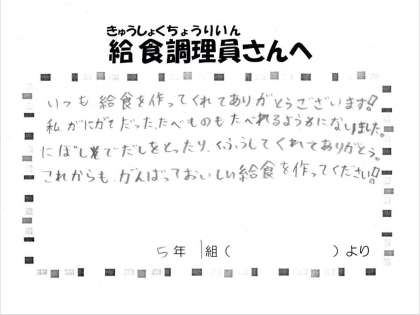 きゅうしょくちょうりいん
給食調理員さんへ
いつも 給食を作ってくれてありがとうございます!!
私がにがてだった、たべものもたべれるようになしました。
にぼし等でだしをとったり、くふうしてくれてありがとう。
これからも、がんばっておいしい給食を作ってください!!
5年 1組( )より